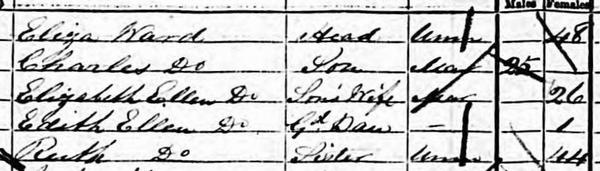 Males Females
Eliza Ward Head Unm 48
Charles Do Son Mar 25
Elizabeth Ellen Do Son's Wife Mar 26
Edith Ellen Do Gd Daur — 1
Ruth Do Sister Unm 44